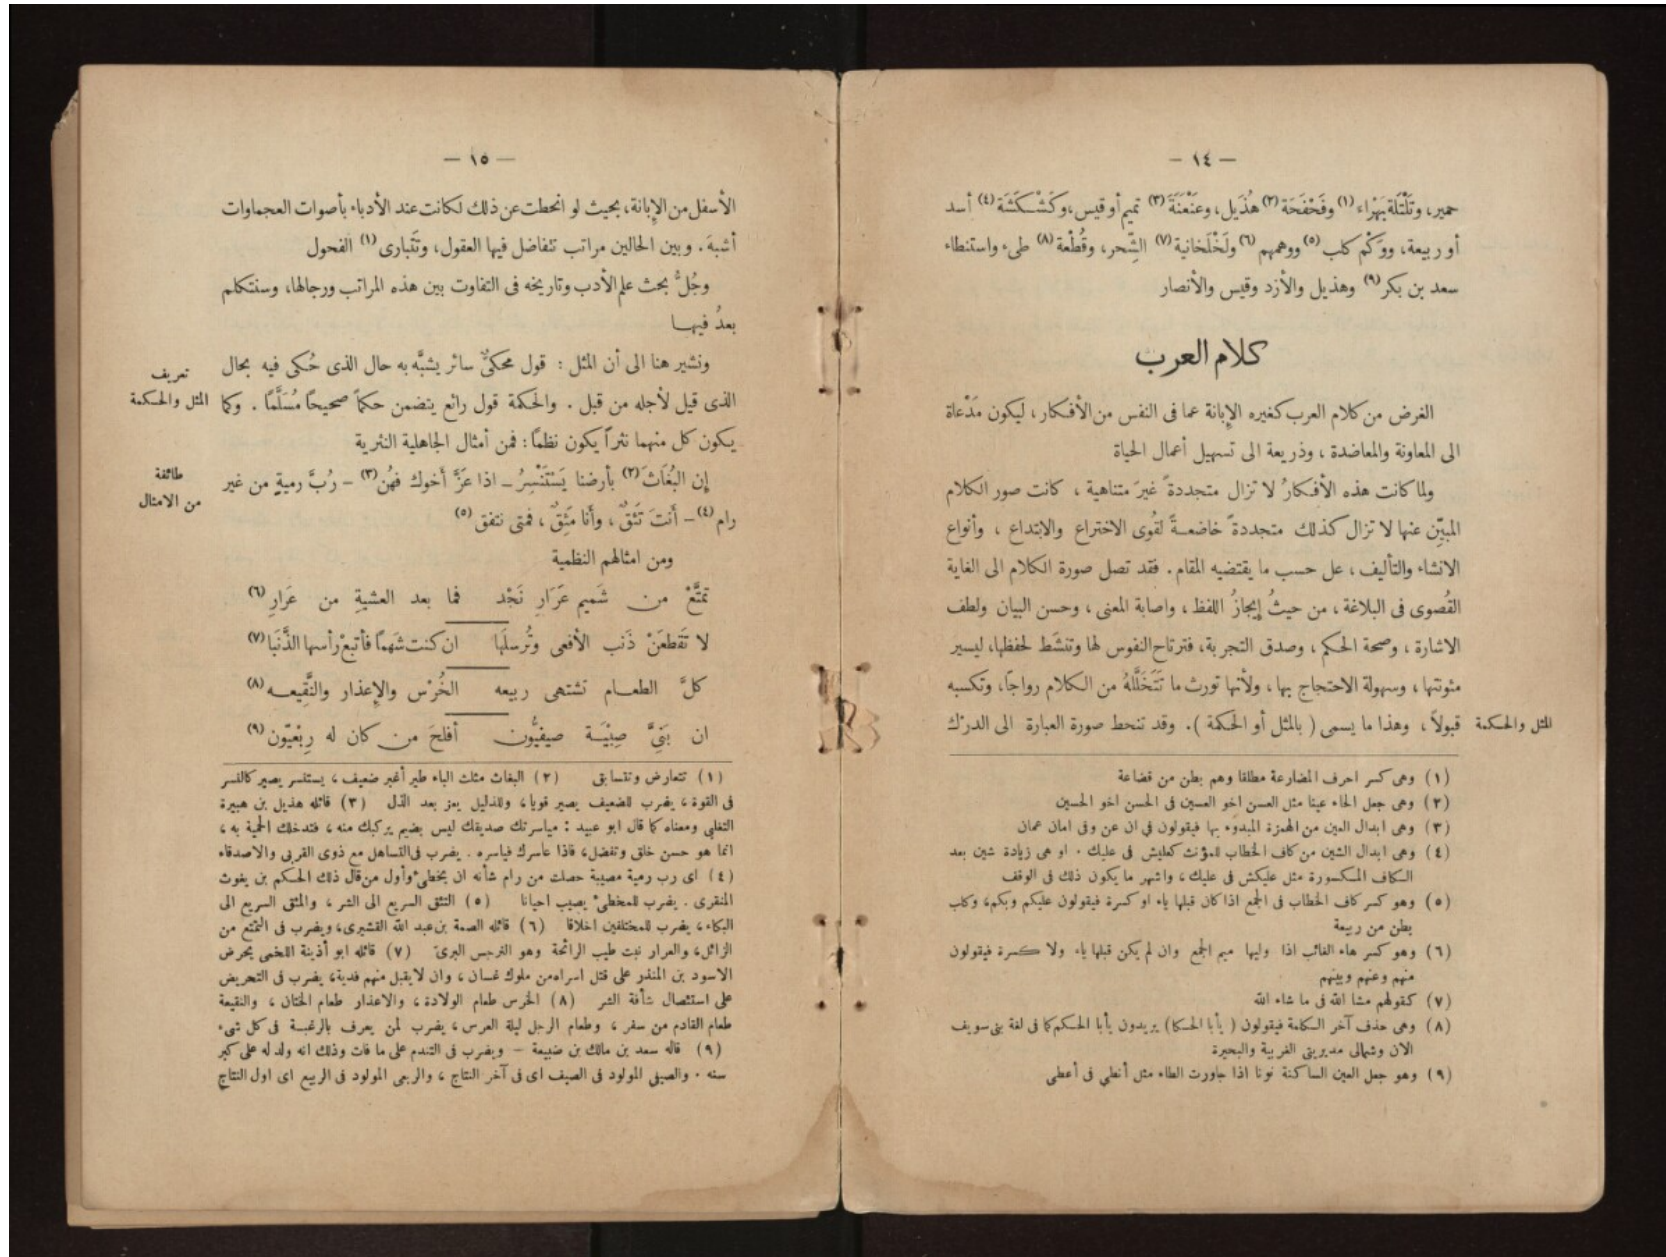 — ١٤ —
حمير، وتَلْتَلَة بَهْراء (١) وفَحْفَحَة (٢) هذَيل، وعَنْعَنَةَ (٣) تميم أو قيس، وكَشْكَشَة (٤) أسد
أو ربيعة، ووَكْم كلب (٥) ووهمهم (٦) ولَخْلَخانية (٧) الشِّحر، وقُطْعة (٨) طىء واستنطاء
سعد بن بكر (٩) وهذيل والأزد وقيس والأنصار
كلام العرب
الغرض من كلام العرب كغيره الإِبانة عما فى النفس من الأفكار، ليكون مَدْعاة
الى المعاونة والمعاضدة، وذريعة الى تسهيل أعمال الحياة
ولما كانت هذه الأفكارُ لا تزال متجددةً غيرَ متناهية، كانت صور الكلام
المبيِّن عنها لا تزال كذلك متجددةً خاضعـةً لقُوى الاختراع والابتداع، وأنواع
الانشاء والتأليف، عل حسب ما يقتضيه المقام. فقد تصل صورة الكلام الى الغاية
القُصوى فى البلاغة، من حيثُ إيجازُ اللفظ، واصابة المعنى، وحسن البيان ولطف
الاشارة، وصحة الحكم، وصدق التجربة، فترتاح النفوس لها وتنشَط لحفظها، ليسير
مئونتها، وسهولة الاحتجاج بها، ولأنها تورث ما تَتَخَلَّلهُ من الكلام رواجًا، وتكسبه
المثل والحكمة
قبولاً، وهذا ما يسمى (بالمثل أو الحكمة). وقد تنحط صورة العبارة الى الدرْك
(١) وهى كسر احرف المضارعة مطلقا وهم بطن من قضاعة
(٢) وهى جعل الحاء عينا مثل العسن اخو العسين فى الحسن اخو الحسين
(٣) وهى ابدال العين من الهمزة المبدوء بها فيقولون في ان عن وفى امان عمان
(٤) وهى ابدال الشين من كاف الخطاب للمؤنث كعليش فى عليك. او هى زيادة شين بعد
الكاف المكسورة مثل عليكش فى عليك، واشهر ما يكون ذلك فى الوقف
(٥) وهو كسر كاف الخطاب فى الجمع اذا كان قبلها ياء او كسرة فيقولون عليكم وبكم، وكلب
بطن من ربيعة
(٦) وهو كسر هاء الغائب اذا وليها ميم الجمع وان لم يكن قبلها ياء ولا كسرة فيقولون
منهم وعنهم وبينهم
(٧) كقولهم مشا الله فى ما شاء الله
(٨) وهى حذف آخر الكلمة فيقولون (يأبا الحكا) يريدون يأبا الحكم كما فى لغة بنى سويف
الان وشمالى مديريتى الغربية والبحيرة
(٩) وهو جعل العين الساكنة نونا اذا جاورت الطاء مثل أنطى فى أعطى
— ١٥ —
الأسفل من الإِبانة، بحيث لو انحطت عن ذلك لكانت عند الأدباء بأصوات العجماوات
أشبهَ. وبين الحالين مراتب تتفاضل فيها العقول، وتَتَبارى (١) الفحول
وجُلُّ بحث علم الأدب وتاريخه فى التفاوت بين هذه المراتب ورجالها، وسنتكلم
بعدُ فيهـا
ونشير هنا الى أن المثل: قول محكىٌّ سائر يشبَّه به حال الذى حُكى فيه بحال
الذى قيل لأجله من قبل. والحكمة قول رائع يتضمن حكمًا صحيحًا مُسَلَّمًا. وكما
تعريف
المثل والحكمة
يكون كل منهما نثراً يكون نظمًا: فمن أمثال الجاهلية النثرية
طائفة
من الامثال
إِن البُغَاثَ (٢) بأرضنا يَسْتَنْسِرُ ـ اذا عَزَّ أخوك فهُن (٣) ـ رُبَّ رميةٍ من غير
رام (٤) ـ أنتَ تَئقٌ، وأنا مَئِقٌ، فمتى نتفق (٥)
ومن امثالهم النظمية
تمتَّعْ من شَميم عَرَارِ نَجْد    فما بعد العشيةِ من عَرَارِ (٦)
لا تَقطعَنْ ذَنب الأفعى وتُرسلَها    ان كنت شَهمًا فأتبعْ رأسها الذَّنَبا (٧)
كلَّ الطعـام تشتهى ربيعه    الخُرْس والإِعذار والنَّقِيعـه (٨)
ان بَنىَّ صِبْيَـة صيفيُّون    أفلحَ من كان له رِبْعيّون (٩)
(١) تتعارض وتتسابق    (٢) البغاث مثلث الباء طير أغبر ضعيف، يستنسر يصير كالنسر
فى القوة، يضرب للضعيف يصير قويا، وللذليل يعز بعد الذل    (٣) قائله هذيل بن هبيرة
التغلبى ومعناه كما قال ابو عبيد: مياسرتك صديقك ليس بضيم يركبك منه، فتدخلك الحمية به،
انما هو حسن خلق وتفضل، فاذا عاسرك فياسره. يضرب فى التساهل مع ذوى القربى والاصدقاء
(٤) اى رب رمية مصيبة حصلت من رام شأنه ان يخطئ وأول من قال ذلك الحكم بن يغوث
المنقرى. يضرب للمخطئ يصيب احيانا    (٥) التئق السريع الى الشر، والمئق السريع الى
البكاء، يضرب للمختلفين اخلاقا    (٦) قائله الصمة بن عبد الله القشيرى، ويضرب فى التمتع من
الزائل، والعرار نبت طيب الرائحة وهو النرجس البرى    (٧) قائله ابو أذينة اللخمى يحرض
الاسود بن المنذر على قتل اسراه من ملوك غسان، وان لا يقبل منهم فدية، يضرب فى التحريض
على استئصال شأفة الشر    (٨) الخرس طعام الولادة، والاعذار طعام الختان، والنقيعة
طعام القادم من سفر، وطعام الرجل ليلة العرس، يضرب لمن يعرف بالرغبـة فى كل شىء
(٩) قاله سعد بن مالك بن ضبيعة – ويضرب فى التندم على ما فات وذلك انه ولد له على كبر
سنه. والصيفى المولود فى الصيف اى فى آخر النتاج، والربعى المولود فى الربيع اى اول النتاج